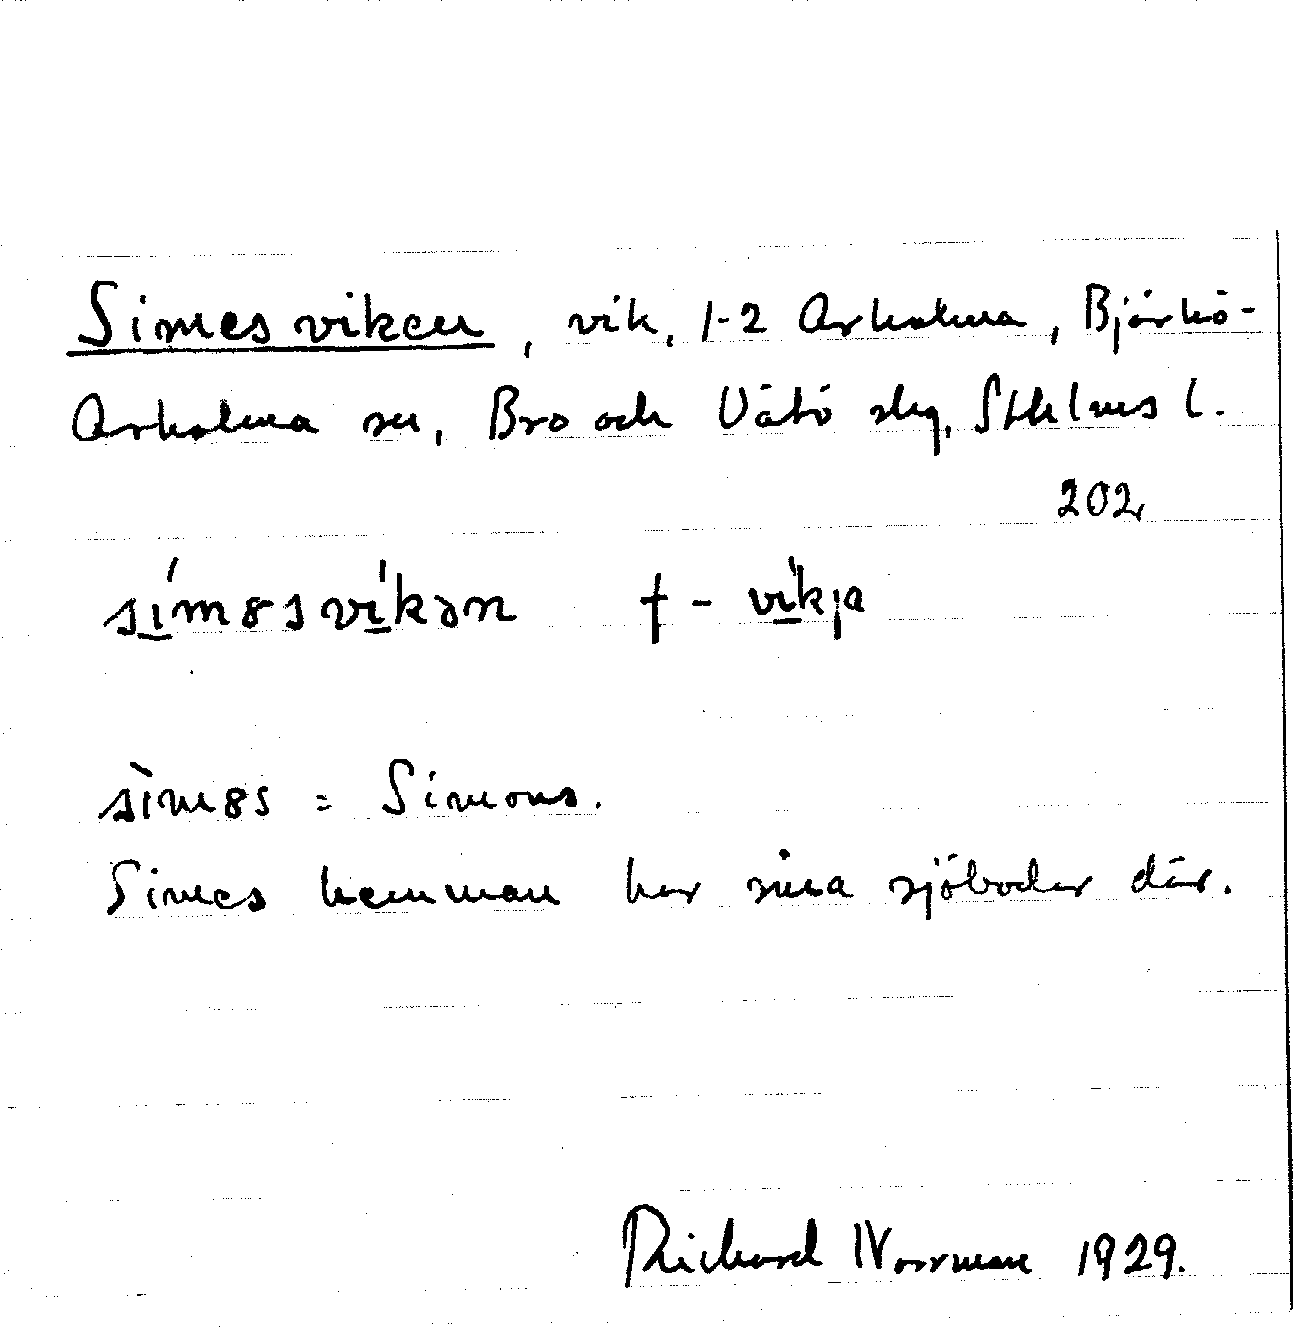 Simesviken, vik, 1-2 Arholma, Björkö-
Arholma sn, Bro och Vätö skg, Sthlms l.
202
sím8svíkən † - víkja
sìm8s = Simons.
Simes hemman har sina sjöbodar där.
Richard Norrman 1929.